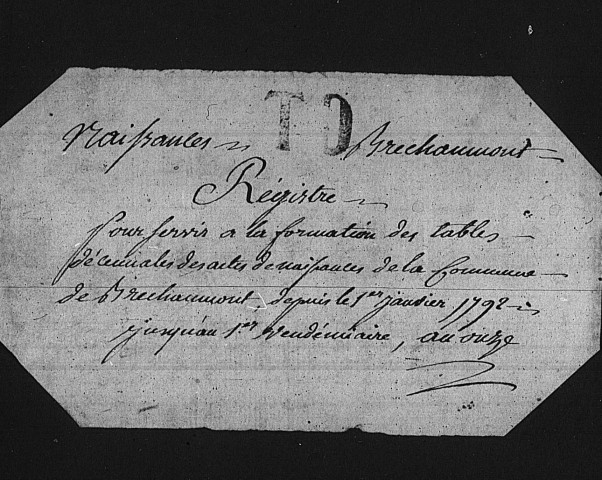 T D
Naissances Brechaumont
Régistre
Pour servir a la formation des tables
décennales des actes de naissances de la Commune
de Brechaumont depuis le 1er janvier 1792
jusqu'au 1er vendémiaire, an onze